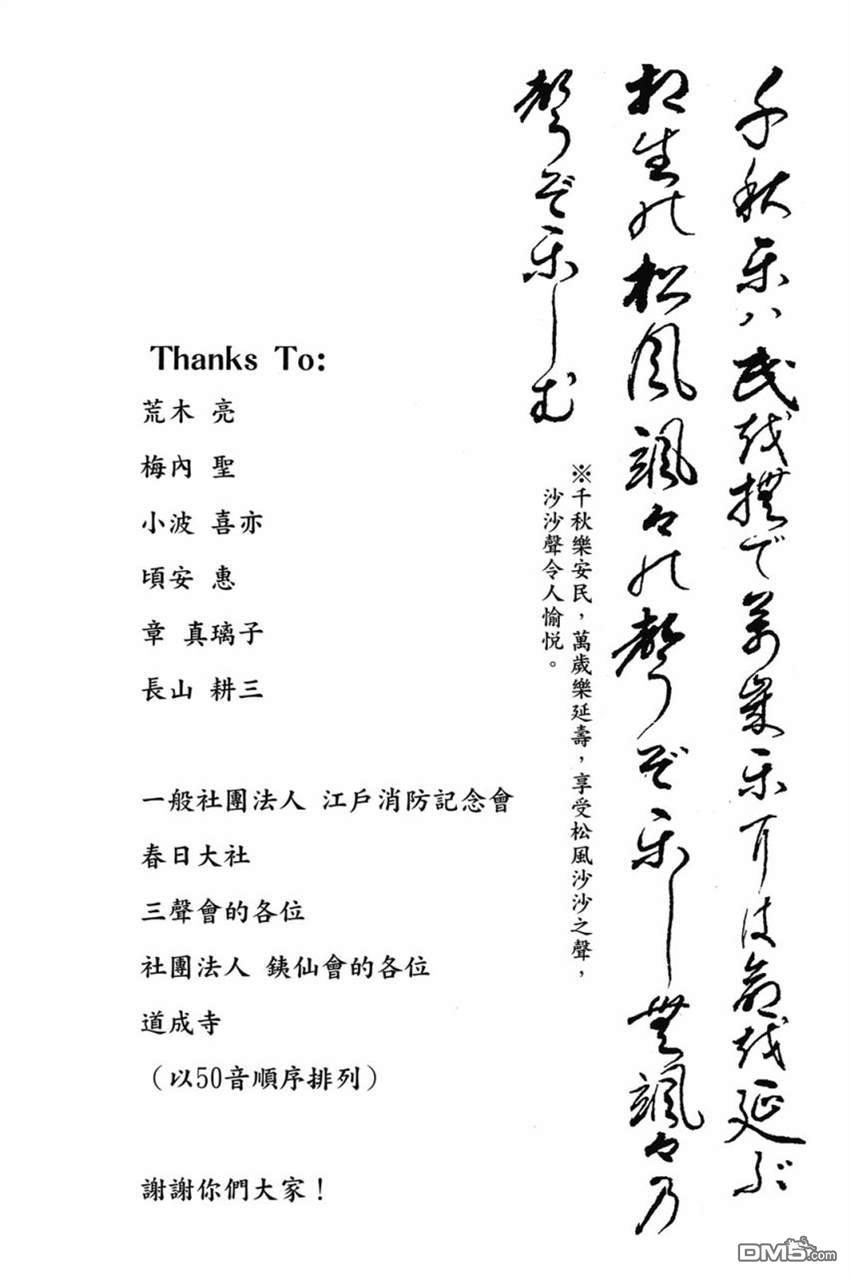 千秋楽ハ民越撫で萬歳楽耳は命越延ぶ
相生能松風颯々能聲ぞ楽しむ颯々乃
聲ぞ楽しむ
※千秋樂安民，萬歲樂延壽，享受松風沙沙之聲，
沙沙聲令人愉悅。
Thanks To:
荒木 亮
梅內 聖
小波 喜亦
頃安 惠
章 真璃子
長山 耕三
一般社團法人 江戶消防記念會
春日大社
三聲會的各位
社團法人 銕仙會的各位
道成寺
（以50音順序排列）
謝謝你們大家！
DM5.com